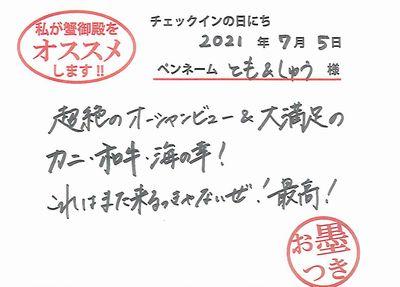 私が蟹御殿を
オススメ
します!!
チェックインの日にち
2021 年 7 月 5 日
ペンネーム とも&しゅう 様
超絶のオーシャンビュー & 大満足の
カニ・和牛・海の幸!
これはまた来るっきゃないぜ!最高!
お墨
つき